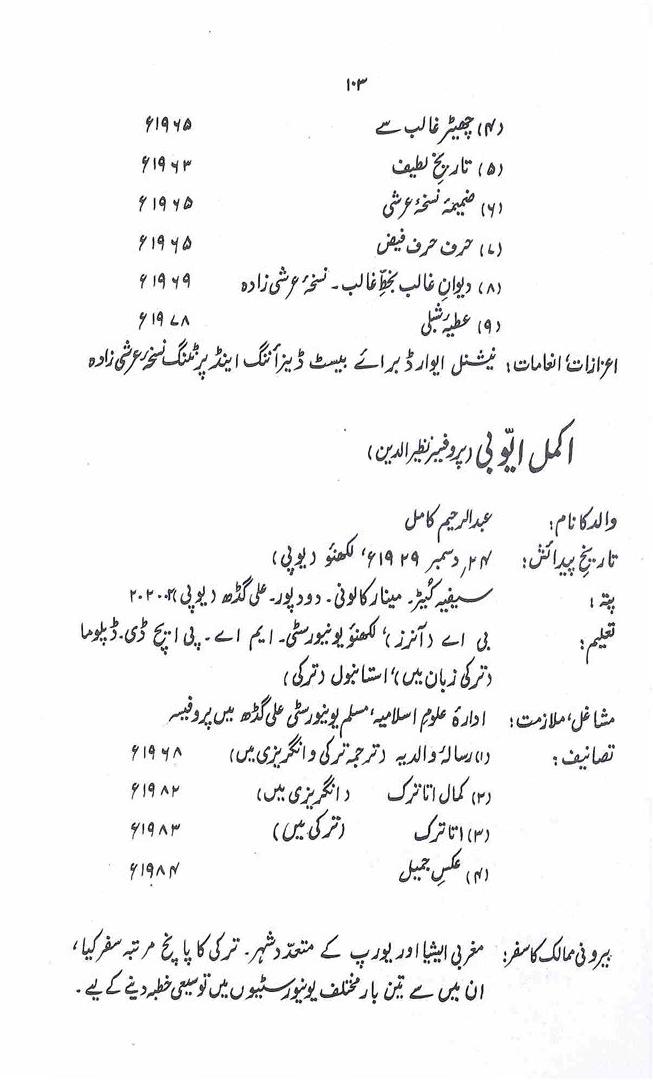 ۱۰۳
(۴) چھیڑ غالب سے ۱۹۶۵ء
(۵) تاریخِ لطیف ۱۹۶۳ء
(۶) ضمیمۂ نسخۂ عرشی ۱۹۶۵ء
(۷) حرف حرف فیض ۱۹۶۵ء
(۸) دیوانِ غالب بخطِّ غالب۔ نسخۂ عرشی زادہ ۱۹۶۹ء
(۹) عطیۂ شبلی ۱۹۷۸ء
اعزازات، انعامات: نیشنل ایوارڈ برائے بیسٹ ڈیزائننگ اینڈ پرنٹنگ نسخۂ عرشی زادہ
اکمل ایّوبی (پروفیسر نظیر الدین)
والد کا نام: عبدالرحیم کامل
تاریخِ پیدائش: ۲۴ر دسمبر ۱۹۲۹ء، لکھنؤ (یوپی)
پتہ: سیفیہ گیٹر۔ مینار کالونی۔ دودپور۔ علی گڈھ (یوپی) ۲۰۲۰۰۲
تعلیم: بی اے (آنرز)، لکھنؤ یونیورسٹی۔ ایم اے۔ پی ایچ ڈی۔ ڈپلوما
(ترکی زبان میں)، استانبول (ترکی)
مشاغل، ملازمت: ادارۂ علومِ اسلامیہ، مسلم یونیورسٹی علی گڈھ میں پروفیسر
تصانیف: (۱) رسالۂ والدیہ (ترجمہ ترکی و انگریزی میں) ۱۹۶۸ء
(۲) کمال اتاترک (انگریزی میں) ۱۹۸۲ء
(۳) اتاترک (ترکی میں) ۱۹۸۳ء
(۴) عکسِ جمیل ۱۹۸۴ء
بیرونی ممالک کا سفر: مغربی ایشیا اور یورپ کے متعدّد شہر۔ ترکی کا پانچ مرتبہ سفر کیا،
ان میں سے تین بار مختلف یونیورسٹیوں میں توسیعی خطبہ دینے کے لیے۔